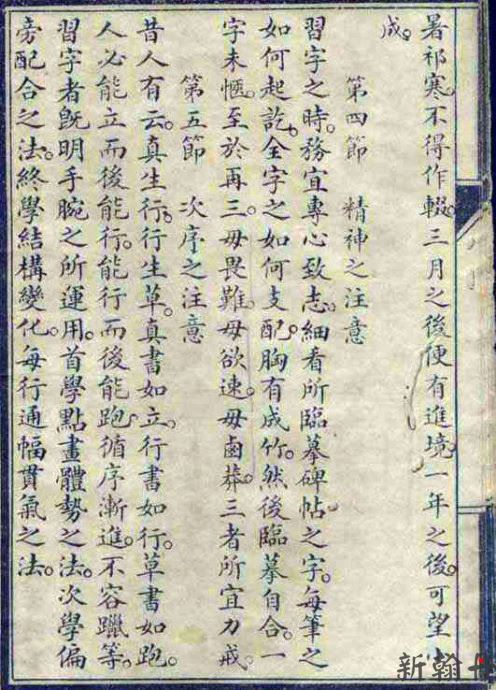 暑祁寒。不得作輟。三月之後。便有進境。一年之後。可望小
成。
第四節　精神之注意
習字之時。務宜專心致志。細看所臨摹碑帖之字。每筆之
如何起訖。全字之如何支配。胸有成竹。然後臨摹自合。一
字未愜。至於再三。毋畏難。毋欲速。毋鹵莽。三者所宜力戒。
第五節　次序之注意
昔人有云。真生行。行生草。真書如立。行書如行。草書如跑。
人必能立而後能行。能行而後能跑。循序漸進。不容躐等。
習字者既明手腕之所運用。首學點畫體勢之法。次學偏
旁配合之法。終學結構變化。每行通幅貫氣之法。
新翰